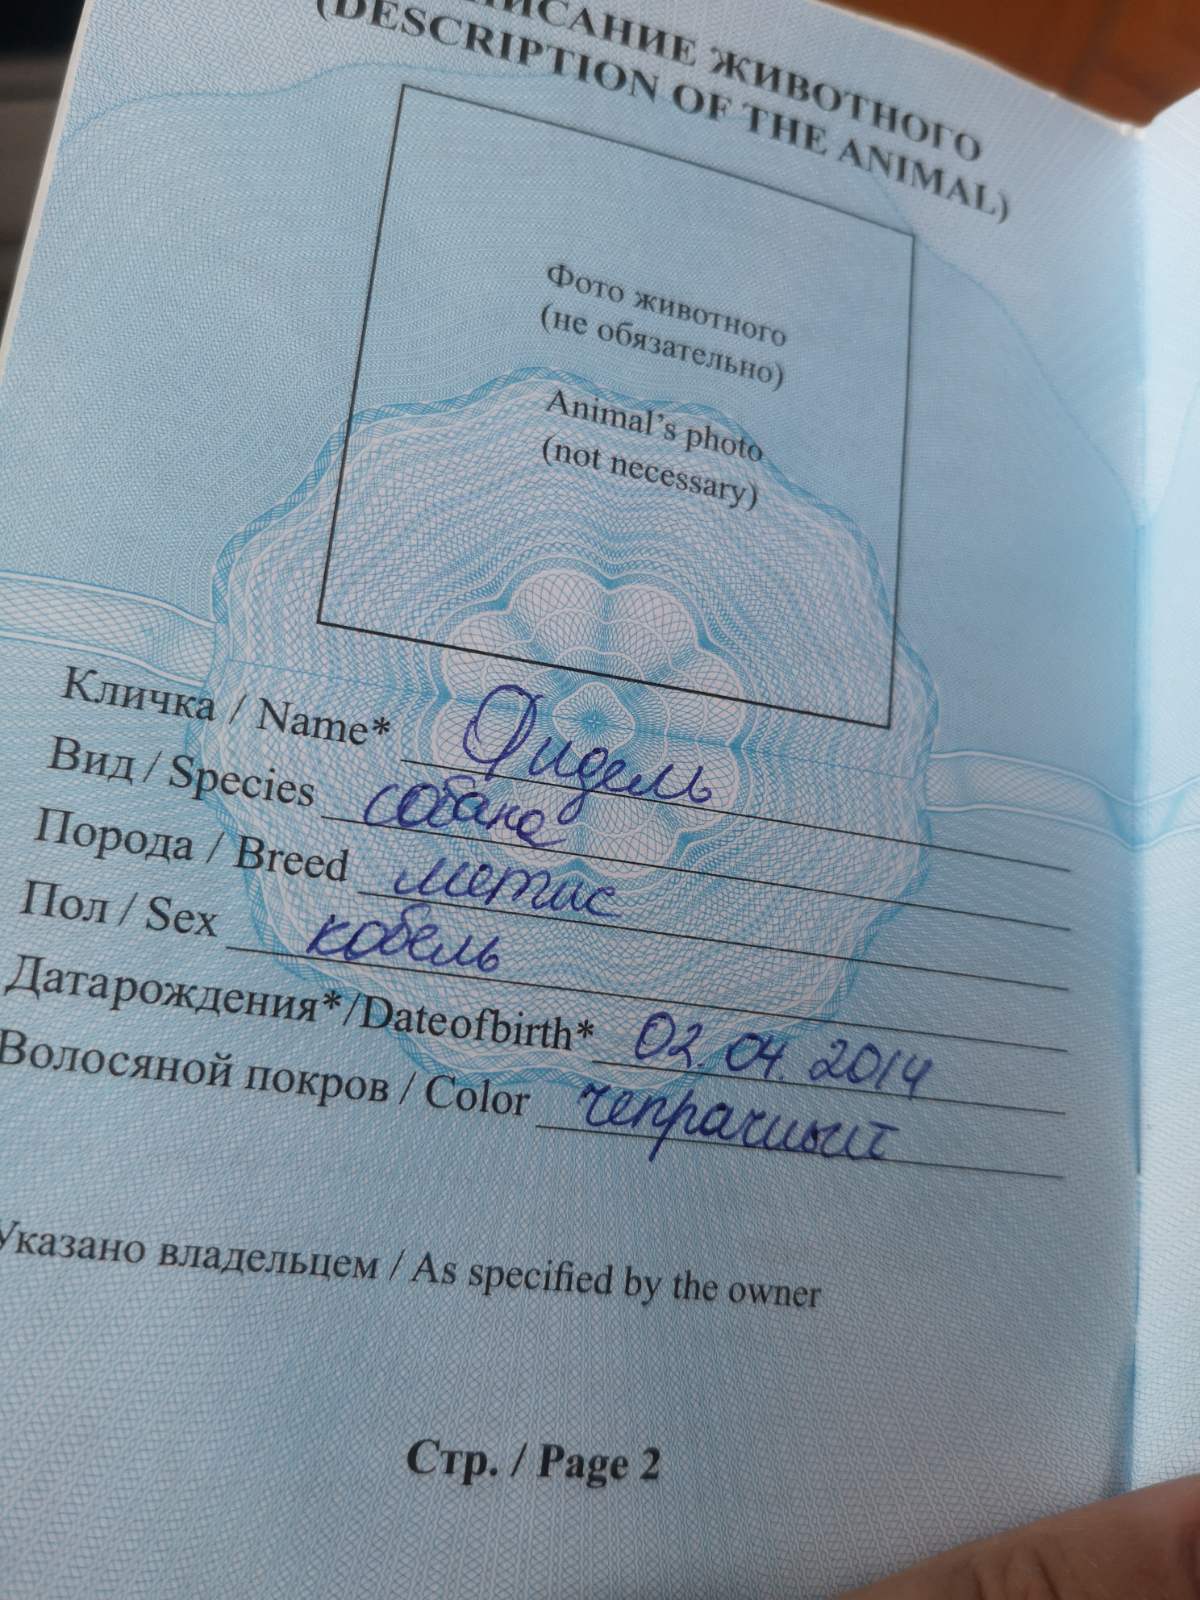 ПИСАНИЕ ЖИВОТНОГО
(DESCRIPTION OF THE ANIMAL)
Фото животного
(не обязательно)
Animal's photo
(not necessary)
Кличка / Name* Фидель
Вид / Species собака
Порода / Breed метис
Пол / Sex кобель
Датарождения*/Dateofbirth* 02.04.2014
Волосяной покров / Color чепрачный
Указано владельцем / As specified by the owner
Стр. / Page 2